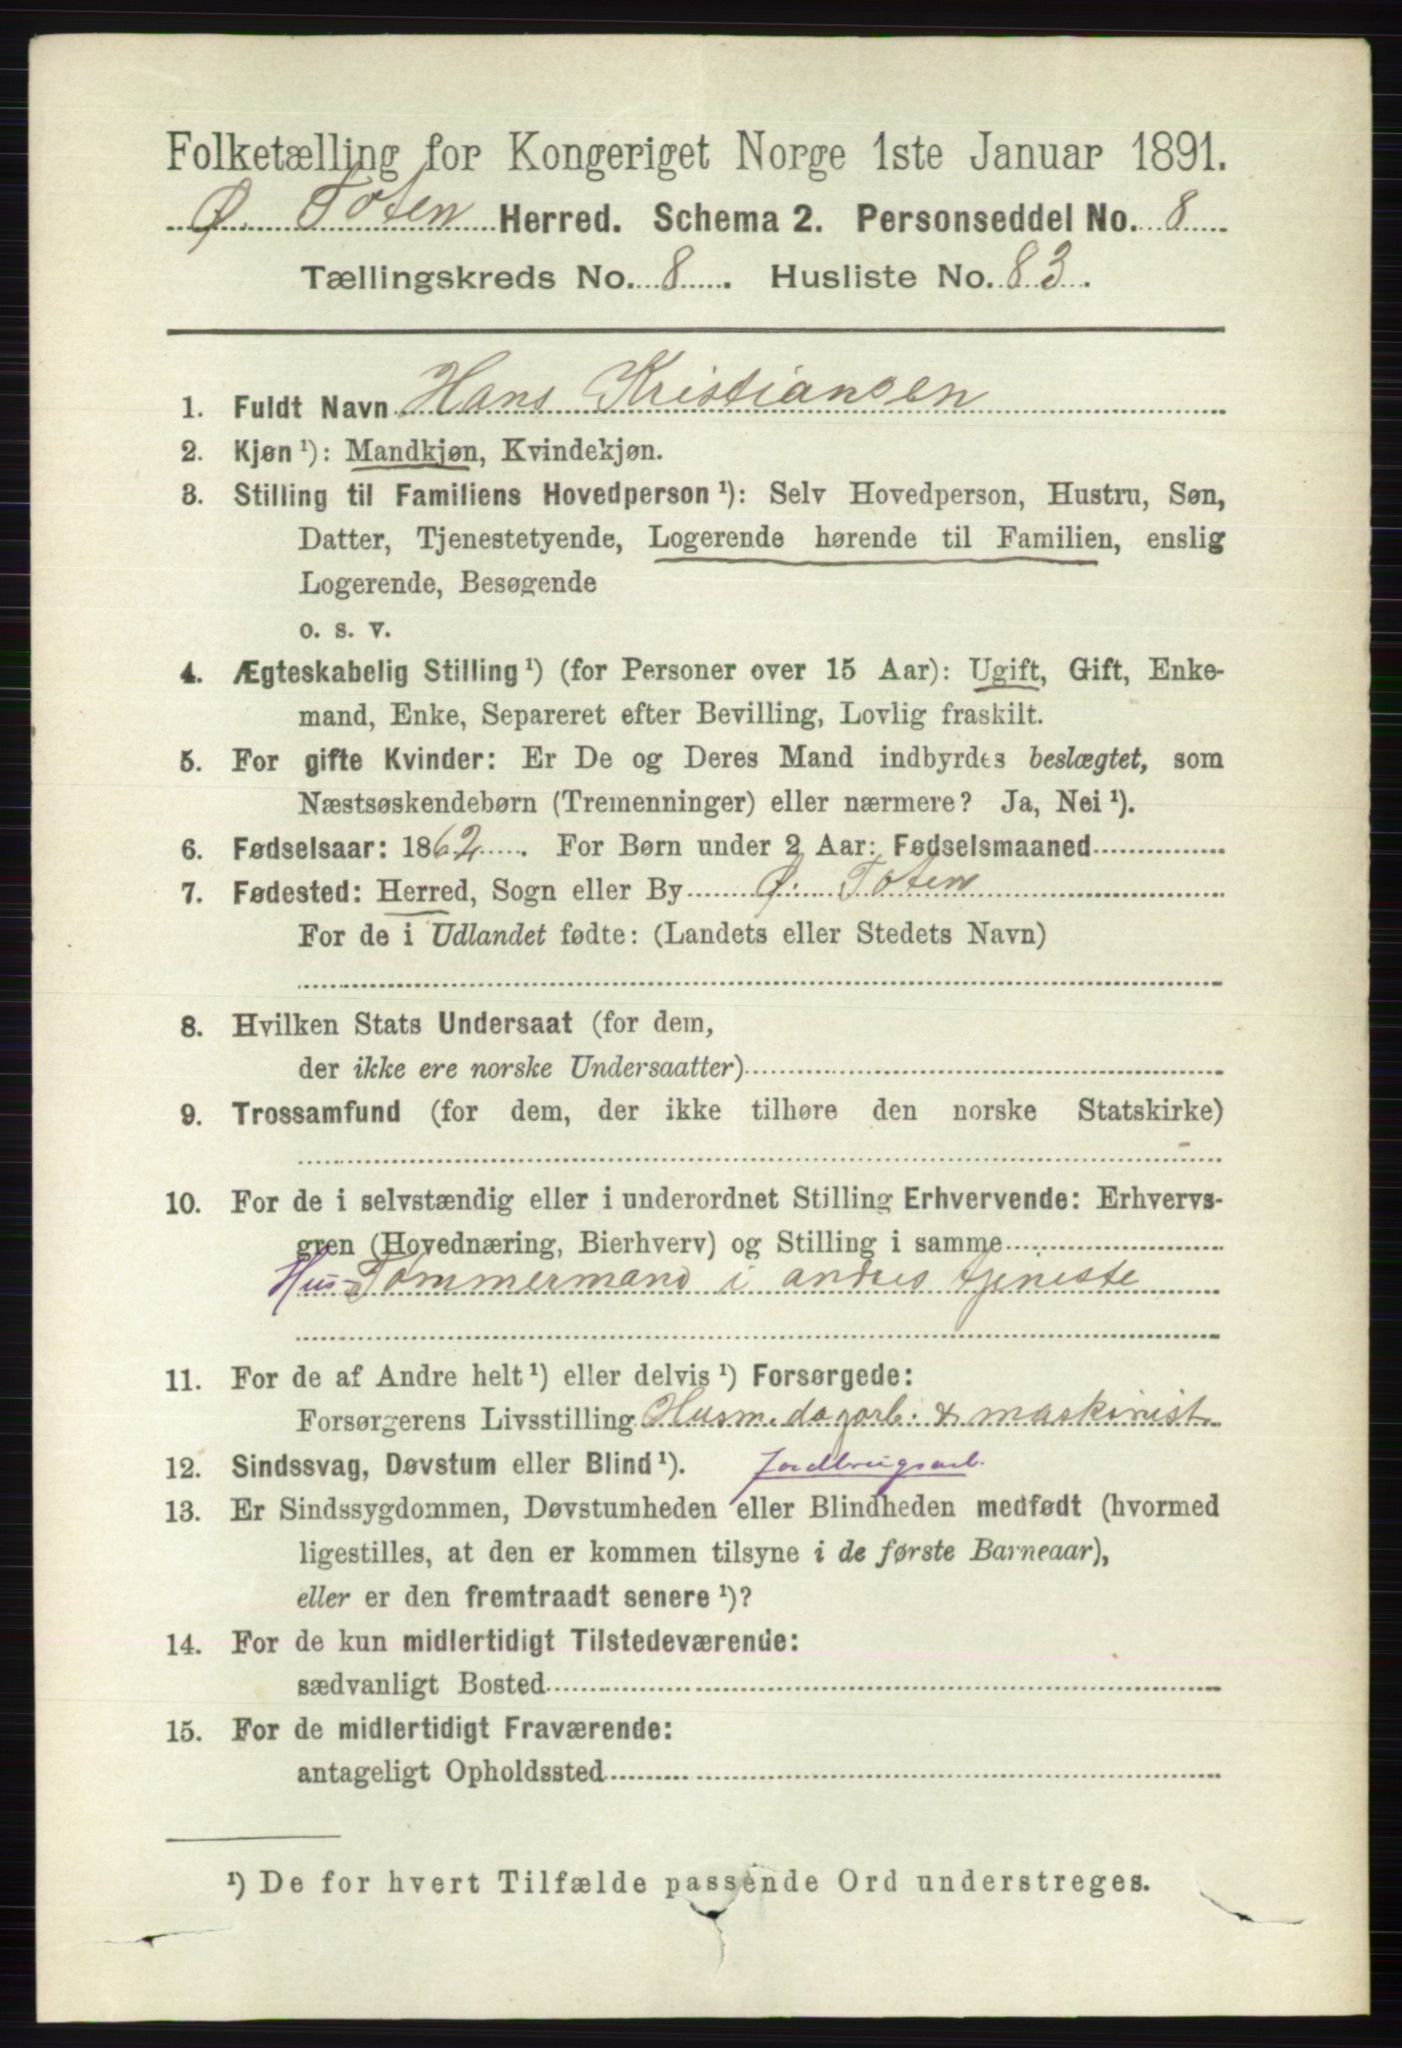 Folketælling for Kongeriget Norge 1ste Januar 1891.
Ø. Toten Herred. Schema 2. Personseddel No. 8
Tællingskreds No. 8. Husliste No. 83.
1. Fuldt Navn Hans Kristiansen
2. Kjøn ¹): Mandkjøn, Kvindekjøn.
3. Stilling til Familiens Hovedperson ¹): Selv Hovedperson, Hustru, Søn,
Datter, Tjenestetyende, Logerende hørende til Familien, enslig
Logerende, Besøgende
o. s. v.
4. Ægteskabelig Stilling ¹) (for Personer over 15 Aar): Ugift, Gift, Enke-
mand, Enke, Separeret efter Bevilling, Lovlig fraskilt.
5. For gifte Kvinder: Er De og Deres Mand indbyrdes beslægtet, som
Næstsøskendebørn (Tremenninger) eller nærmere? Ja, Nei ¹).
6. Fødselsaar: 1862. For Børn under 2 Aar: Fødselsmaaned
7. Fødested: Herred, Sogn eller By Ø. Toten
For de i Udlandet fødte: (Landets eller Stedets Navn)
8. Hvilken Stats Undersaat (for dem,
der ikke ere norske Undersaatter)
9. Trossamfund (for dem, der ikke tilhøre den norske Statskirke)
10. For de i selvstændig eller i underordnet Stilling Erhvervende: Erhvervs-
gren (Hovednæring, Bierhverv) og Stilling i samme
Hus-Tømmermand i andres tjeniste
11. For de af Andre helt ¹) eller delvis ¹) Forsørgede:
Forsørgerens Livsstilling Husm. dagarb. & maskinist
12. Sindssvag, Døvstum eller Blind ¹). Jordbrugsarb.
13. Er Sindssygdommen, Døvstumheden eller Blindheden medfødt (hvormed
ligestilles, at den er kommen tilsyne i de første Barneaar),
eller er den fremtraadt senere ¹)?
14. For de kun midlertidigt Tilstedeværende:
sædvanligt Bosted
15. For de midlertidigt Fraværende:
antageligt Opholdssted
¹) De for hvert Tilfælde passende Ord understreges.